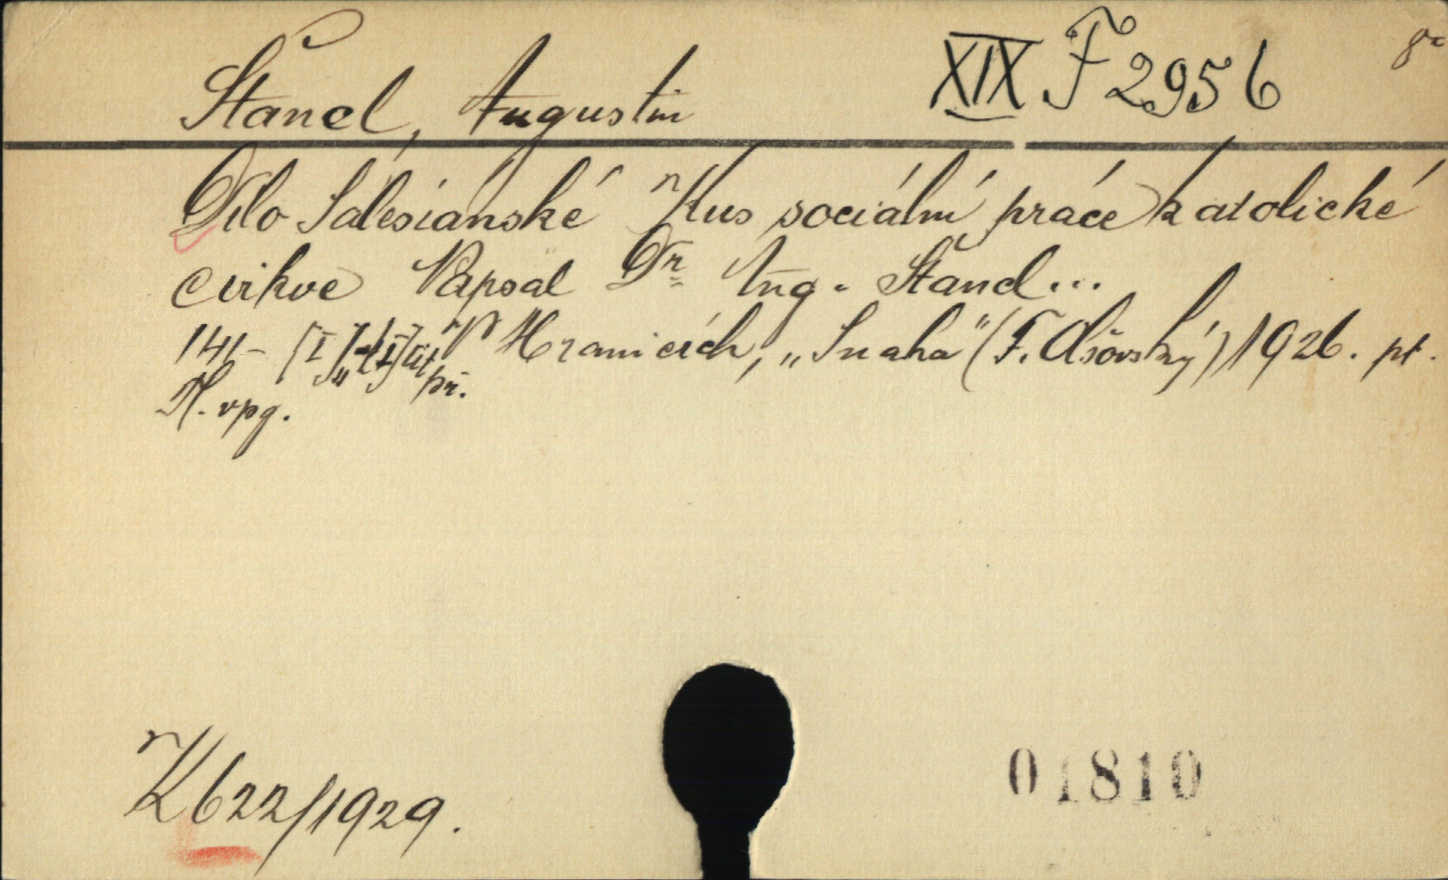 Štancl, Augustin XIX F 2956 8°
Dílo Salesiánské Kus sociální práce katolické
církve Napsal Dr Aug. Štancl...
141- V Hranicích, „Snaha" (F. Ašovský) 1926. pt.
př.
K. vpg.
K 622/1929.
01810